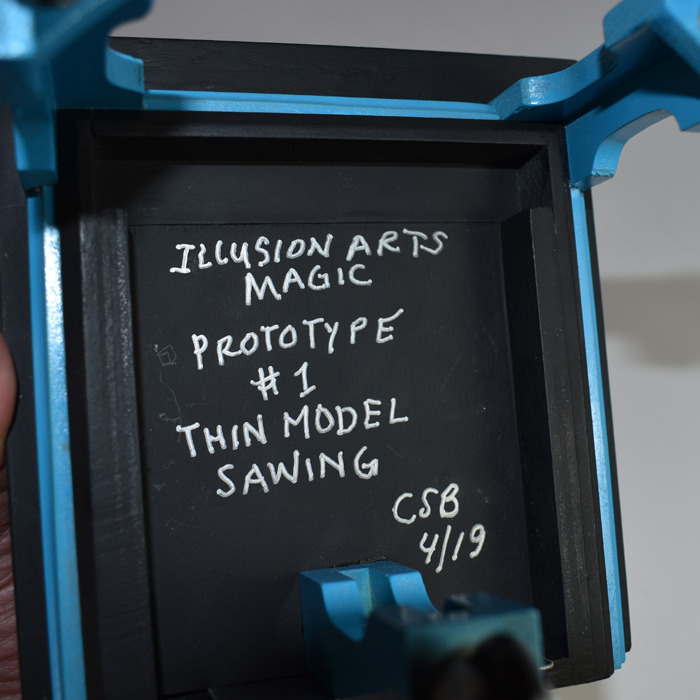 ILLUSION ARTS
MAGIC
PROTOTYPE
# 1
THIN MODEL
SAWING
CSB
4/19